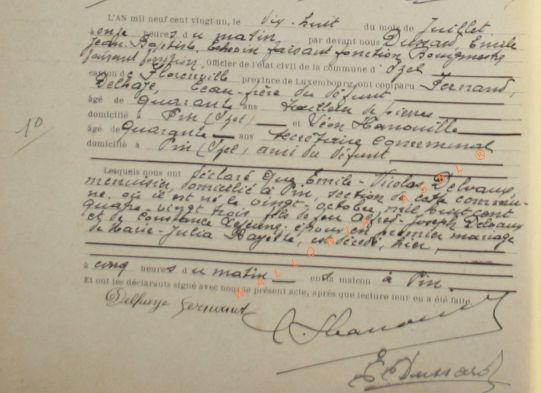 L'AN mil neuf cent vingt-un, le dix-huit du mois de Juillet
à onze heures du matin, par devant nous Dussard, Emile
Jean-Baptiste, échevin faisant fonction Bourgmestre,
officier de l'état civil de la commune d'Izel
canton de Florenville province de Luxembourg, ont comparu Fernand,
Delhaye, beau-frère du défunt,
âgé de quarante ans tailleur de pierres
domicilié à Pin (Izel) et Léon Hanouille
âgé de quarante ans secrétaire communal
domicilié à Pin (Izel) ami du défunt
Lesquels nous ont déclaré que Emile-Nicolas Delvaux,
menuisier, domicilié à Pin, section de cette commu-
ne où il est né le vingt octobre mil huit cent
quatre-vingt trois, fils de feu Joseph Delvaux
et de Constance époux en premier mariage
de Marie-Julia Bayette, est décédé, hier,
à cinq heures du matin en sa maison à Pin.
Et ont les déclarants signé avec nous le présent acte, après que lecture leur en a été faite.
Delhaye Fernand
L Hanouille
E Dussard
10
WALLONIA ASBL ®